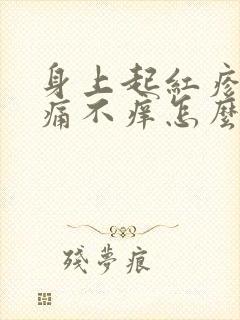 身上起紅疹
痛不癢怎麼
殘夢痕